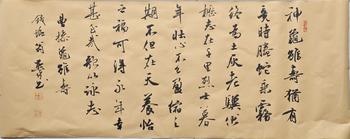 神龜雖壽猶有
竟時騰蛇乘霧
終為土灰老驥伏
櫪志在千里烈士暮
年壯心不已盈縮之
期不但在天養怡
之福可得永年幸
甚至哉歌以詠志
曹操龜雖壽